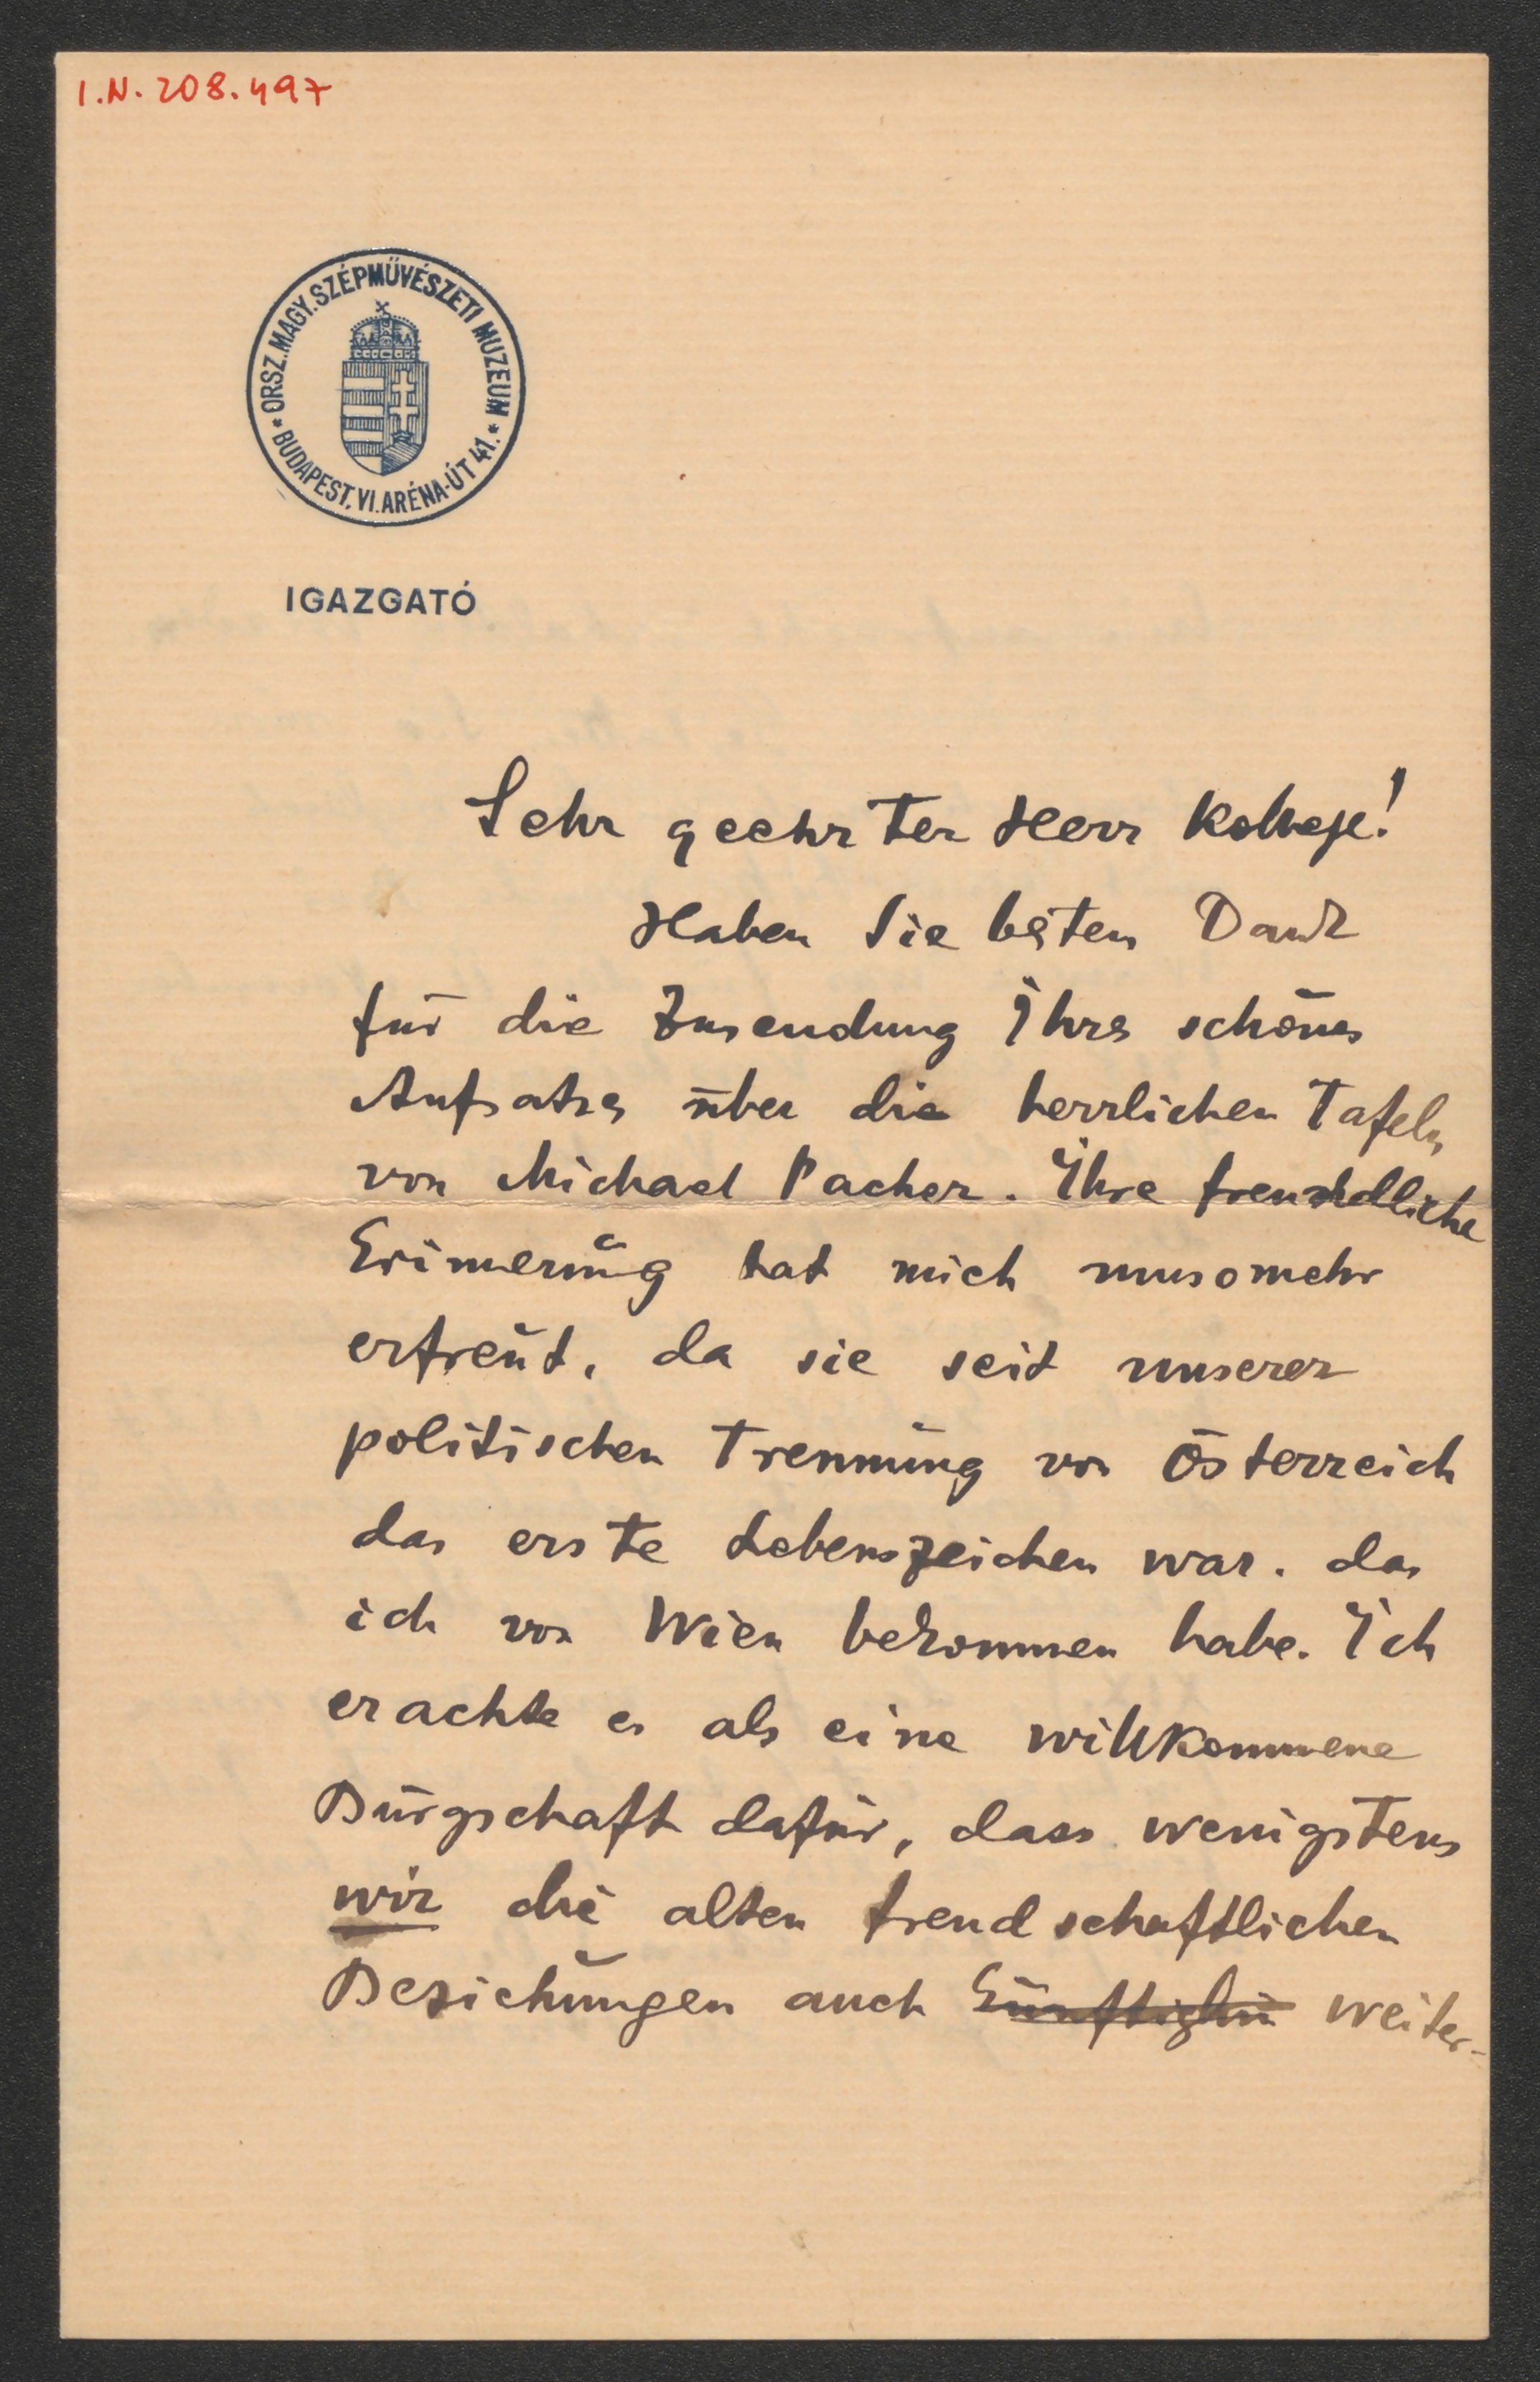 I.N. 208.497
ORSZ. MAGY. SZÉPMŰVÉSZETI MUZEUM
* BUDAPEST, VI. ARÉNA-ÚT 41. *
IGAZGATÓ
Sehr geehrter Herr Kollege!
Haben Sie besten Dank
für die Zusendung Ihres schönes
Aufsatzes über die herrlichen Tafeln
von Michael Pacher. Ihre freundliche
Erinnerung hat mich umsomehr
erfreut, da sie seit unserer
politischen Trennung von Österreich
das erste Lebenszeichen war, das
ich von Wien bekommen habe. Ich
erachte es als eine willkommene
Bürgschaft dafür, dass wenigstens
wir die alten freudschaftlichen
Beziehungen auch künftighin weiter-